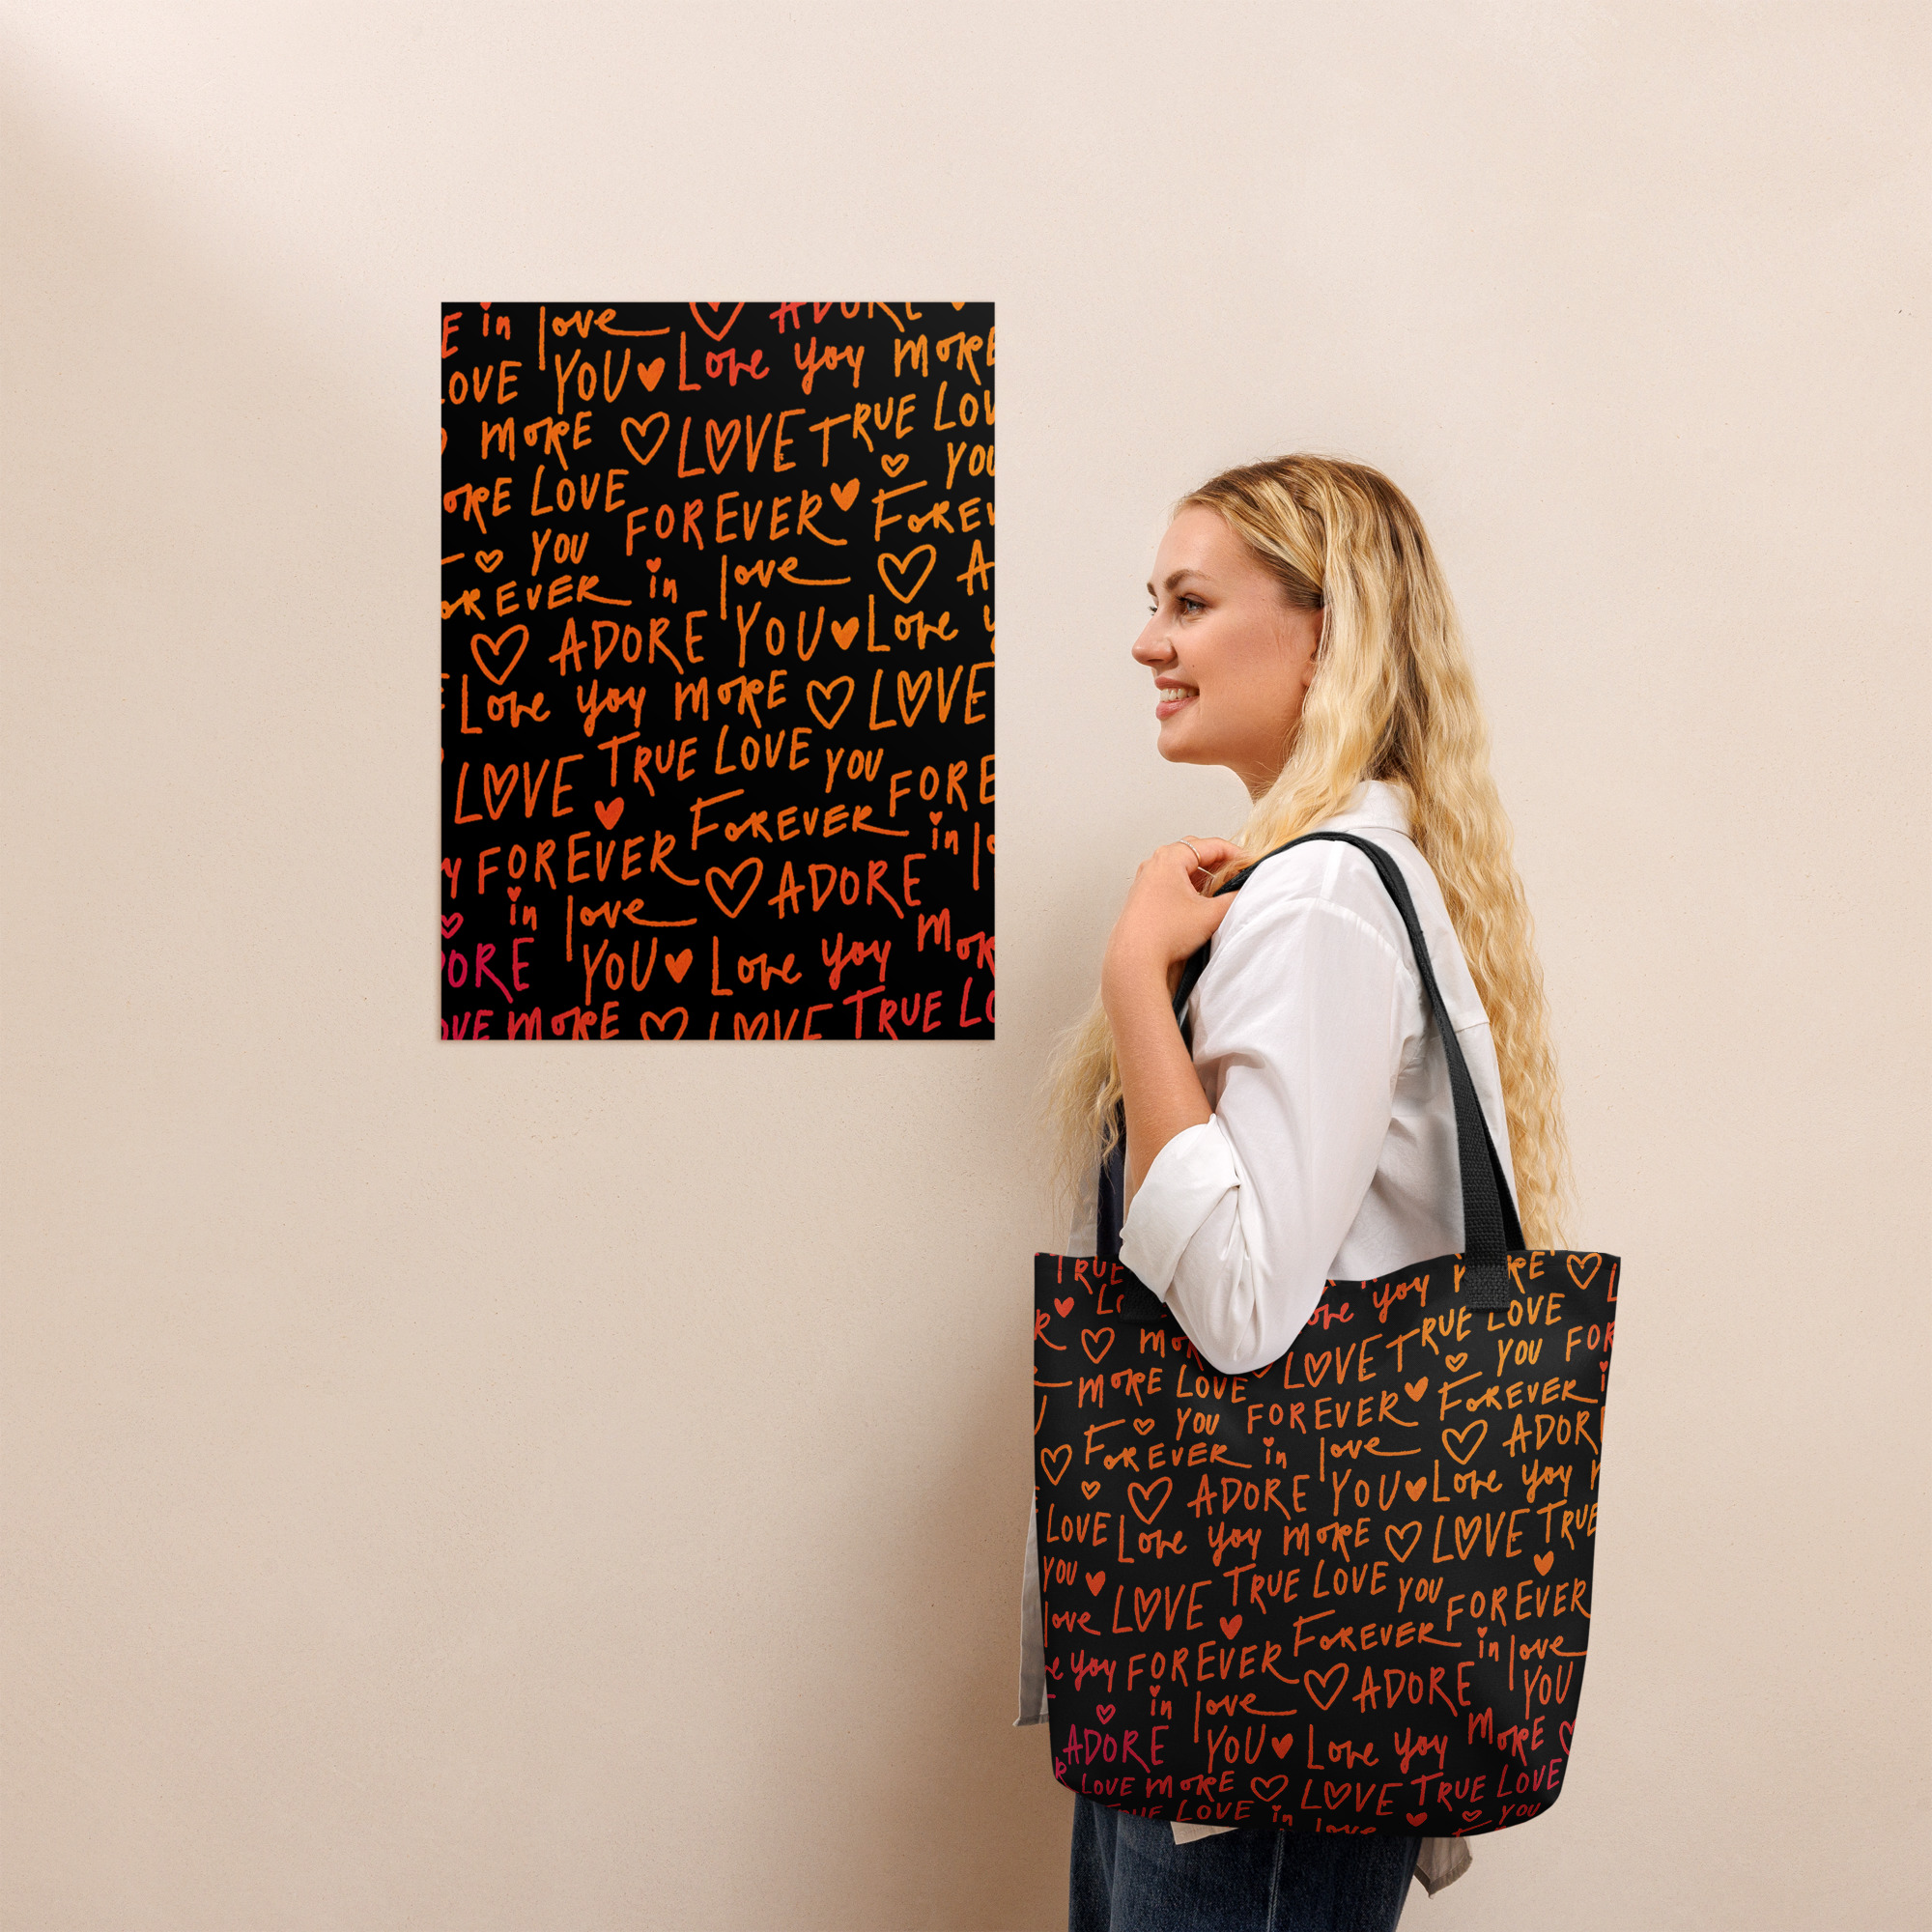 E in love ♡ ADORE
LOVE YOU♥ Love you MORE
MORE ♡ LOVE TRUE LOV
ORE LOVE ♡ YOU
FOREVER♥ FOREV
♡ YOU
OREVER in love ♡ A
♡ ADORE YOU♥ Love y
E Love you MORE ♡ LOVE
LOVE TRUE LOVE YOU FORE
♥ FOREVER in lo
y FOREVER ♡ ADORE
♡ in love MOR
DORE YOU♥ Love you
OVE MORE ♡ LOVE TRUE LO
TRUE ORE ♡ L
♥ L ove you TRUE LOVE
R ♡ MOR LOVE ♡ YOU FOR
MORE LOVE FOREVER♥ FOREVER
♡ YOU
♡ FOREVER in love ♡ ADOR
♡ ♡ ADORE YOU♥ Love you
LOVE Love you MORE ♡ LOVE TRUE
YOU ♥ LOVE TRUE LOVE YOU ♥ FOREVER
love ♥ FOREVER in love
e you FOREVER ♡ ADORE YOU
♡ in love MORE
ADORE YOU♥ Love you
R LOVE MORE ♡ LOVE TRUE LOVE
TRUE LOVE in love ♥ ♡ YOU